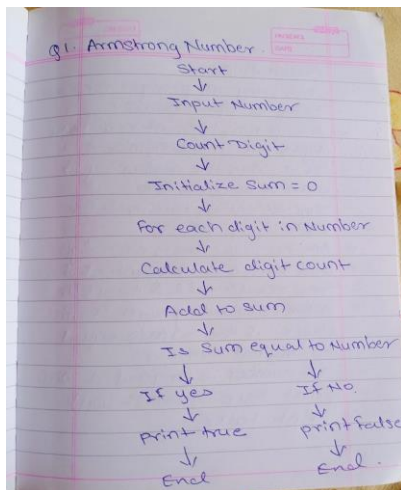 Q1. Armstrong Number.
Start
↓
Input Number
↓
Count Digit
↓
Initialize Sum = 0
↓
For each digit in Number
↓
Calculate digit count
↓
Add to sum
↓
Is Sum equal to Number
↓ ↓
If yes If No.
↓ ↓
print true print false
↓ ↓
End End.